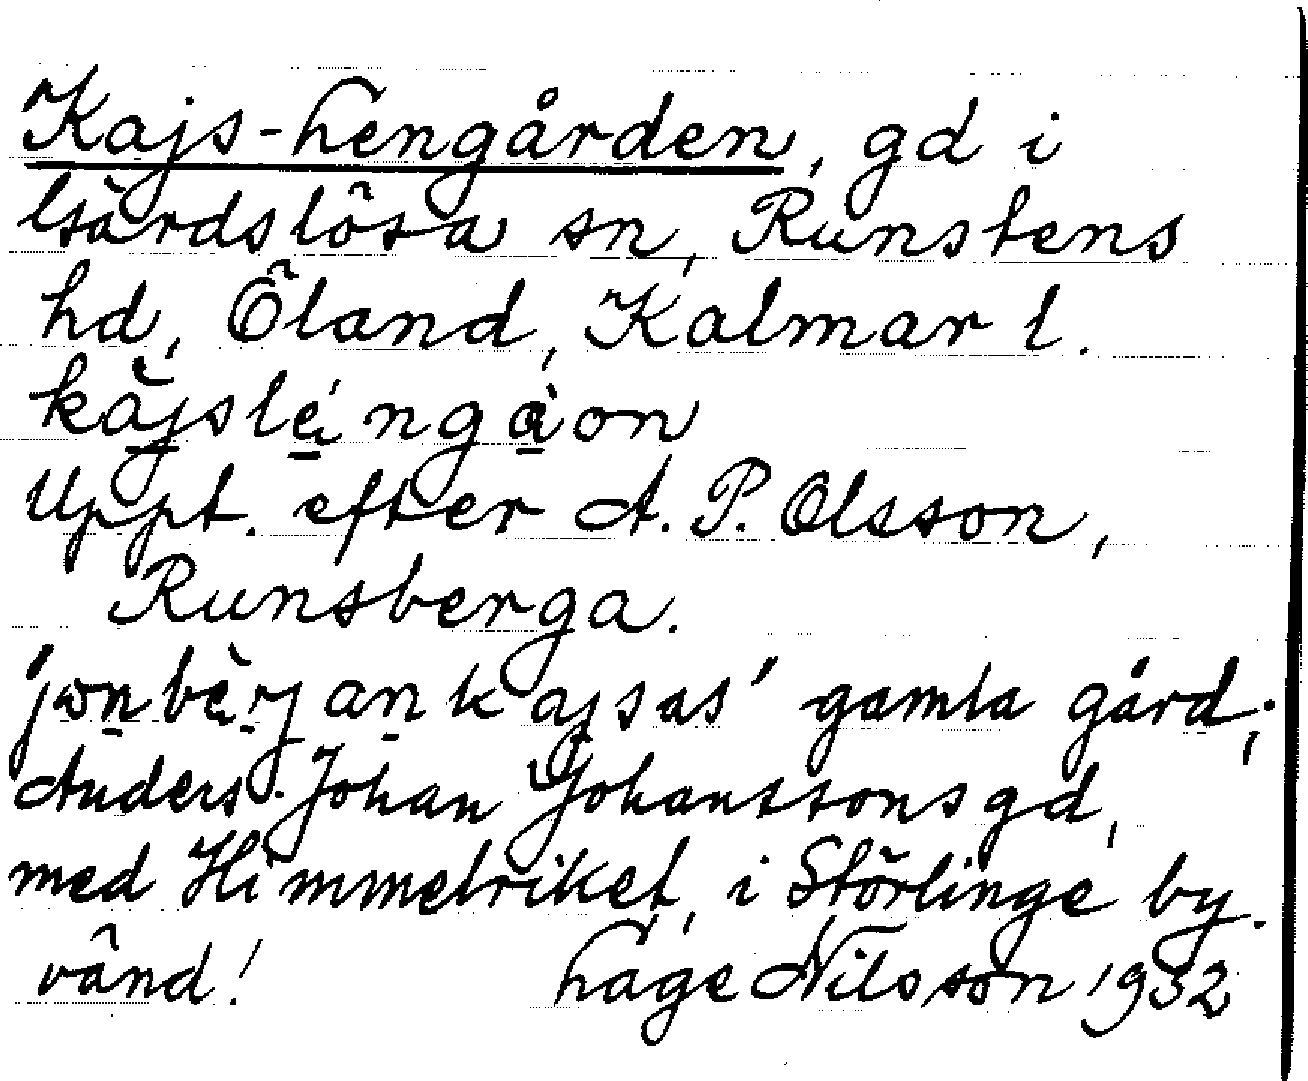 Kajs-Lengården, gd i
Gärdslösa sn, Runstens
hd, Öland, Kalmar l.
kajsléngàon
Uppt. efter A. P. Olsson,
Runsberga.
'jonbærjankajsas' gamla gård;
Anders Johan Johanssons gd,
med Himmelriket, i Störlinge by.
vänd! Lage Nilsson 1932